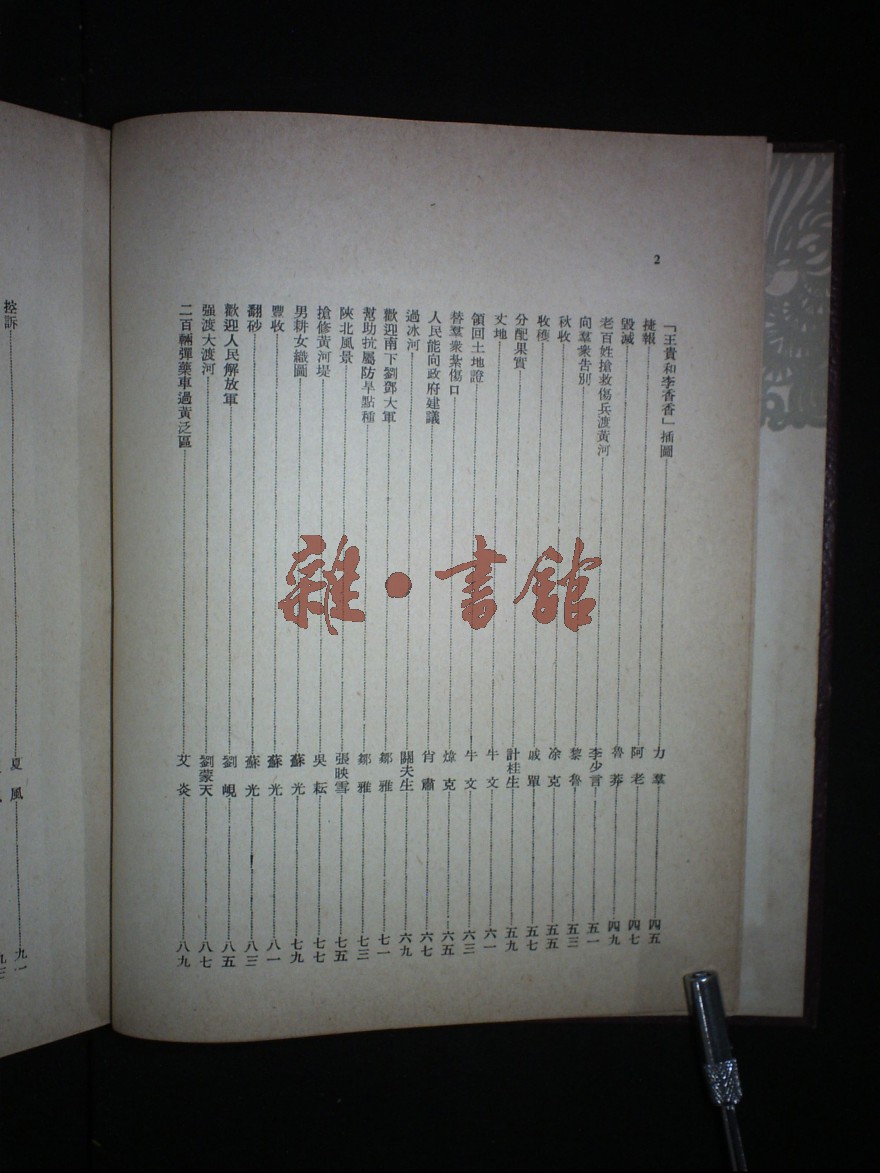 2
「王貴和李香香」插圖 力羣 四五
捷報 阿老 四七
毀滅 魯莽 四九
老百姓搶救傷兵渡黃河 李少言 五一
向羣衆告別 黎魯 五三
秋收 凃克 五五
收穫 戚單 五七
分配果實 計桂生 五九
丈地 牛文 六一
領回土地證 牛文 六三
替羣衆紮傷口 煒克 六五
人民能向政府建議 肖肅 六七
過冰河 關夫生 六九
歡迎南下劉鄧大軍 鄒雅 七一
幫助抗屬防旱點種 鄒雅 七三
陝北風景 張映雪 七五
搶修黃河堤 吳耘 七七
男耕女織圖 蘇光 七九
豐收 蘇光 八一
翻砂 蘇光 八三
歡迎人民解放軍 劉峴 八五
强渡大渡河 劉蒙天 八七
二百輛彈藥車過黃泛區 艾炎 八九
控訴 夏風 九一
九三
雜·書館